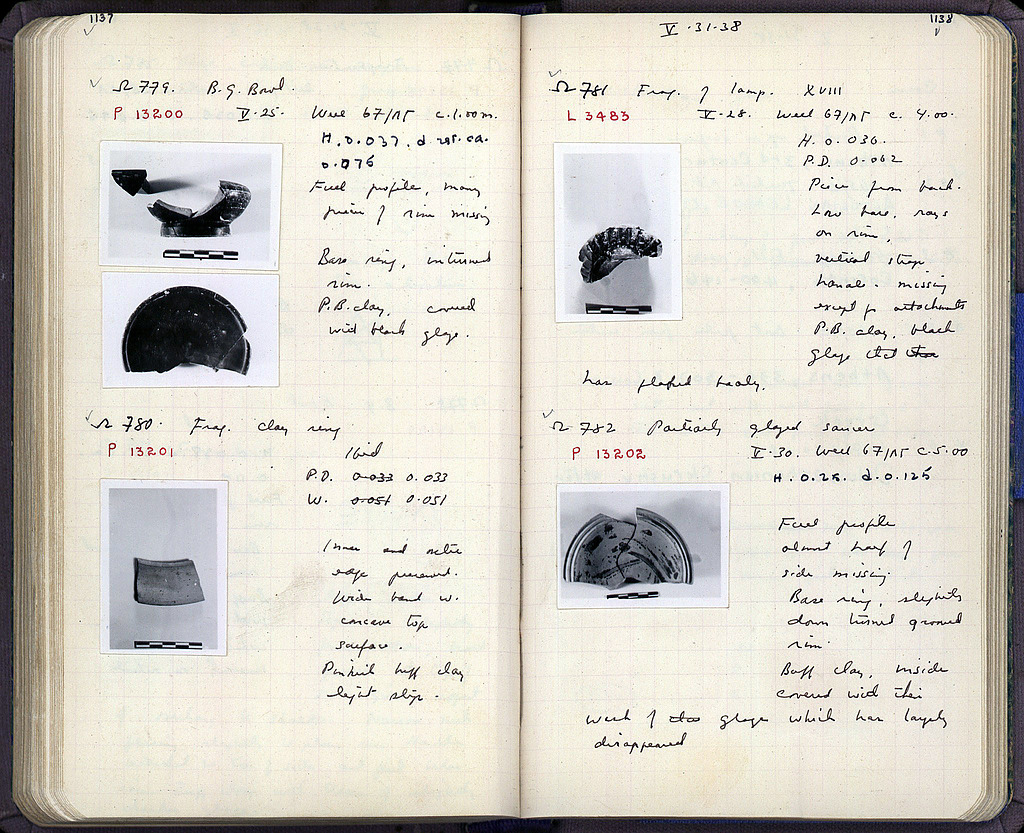 1137
Ω 779. B.G. Bowl.
P 13200 V·25· Well 67/ΛΓ c.1.00m.
H.0.037. d. res. ca.
0.076
Full profile, many
pieces of rim missing
Base ring, inturned
rim.
P.B. clay, covered
with black glaze.
Ω 780· Frag. clay ring
P 13201 Ibid
P.D. 0.033 0.033
W. 0.051 0.051
Inner and outer
edge preserved.
Wide band w.
concave top
surface.
Pinkish buff clay
light slip.
V·31·38
1138
Ω 781 Frag. of lamp. XVIII
L 3483 V·28· Well 67/ΛΓ c. 4.00.
H. 0.036.
P.D. 0.062
Piece from back.
Low base, rays
on rim,
vertical strap
handle missing
except for attachments
P.B. clay, black
glaze that
has flaked badly.
Ω 782 Partially glazed saucer
P 13202 V·30. Well 67/ΛΓ c.5.00
H.0.25. d.0.125
Full profile
almost half of
side missing.
Base ring, slightly
down turned grooved
rim.
Buff clay, inside
covered with thin
wash of glaze which has largely
disappeared